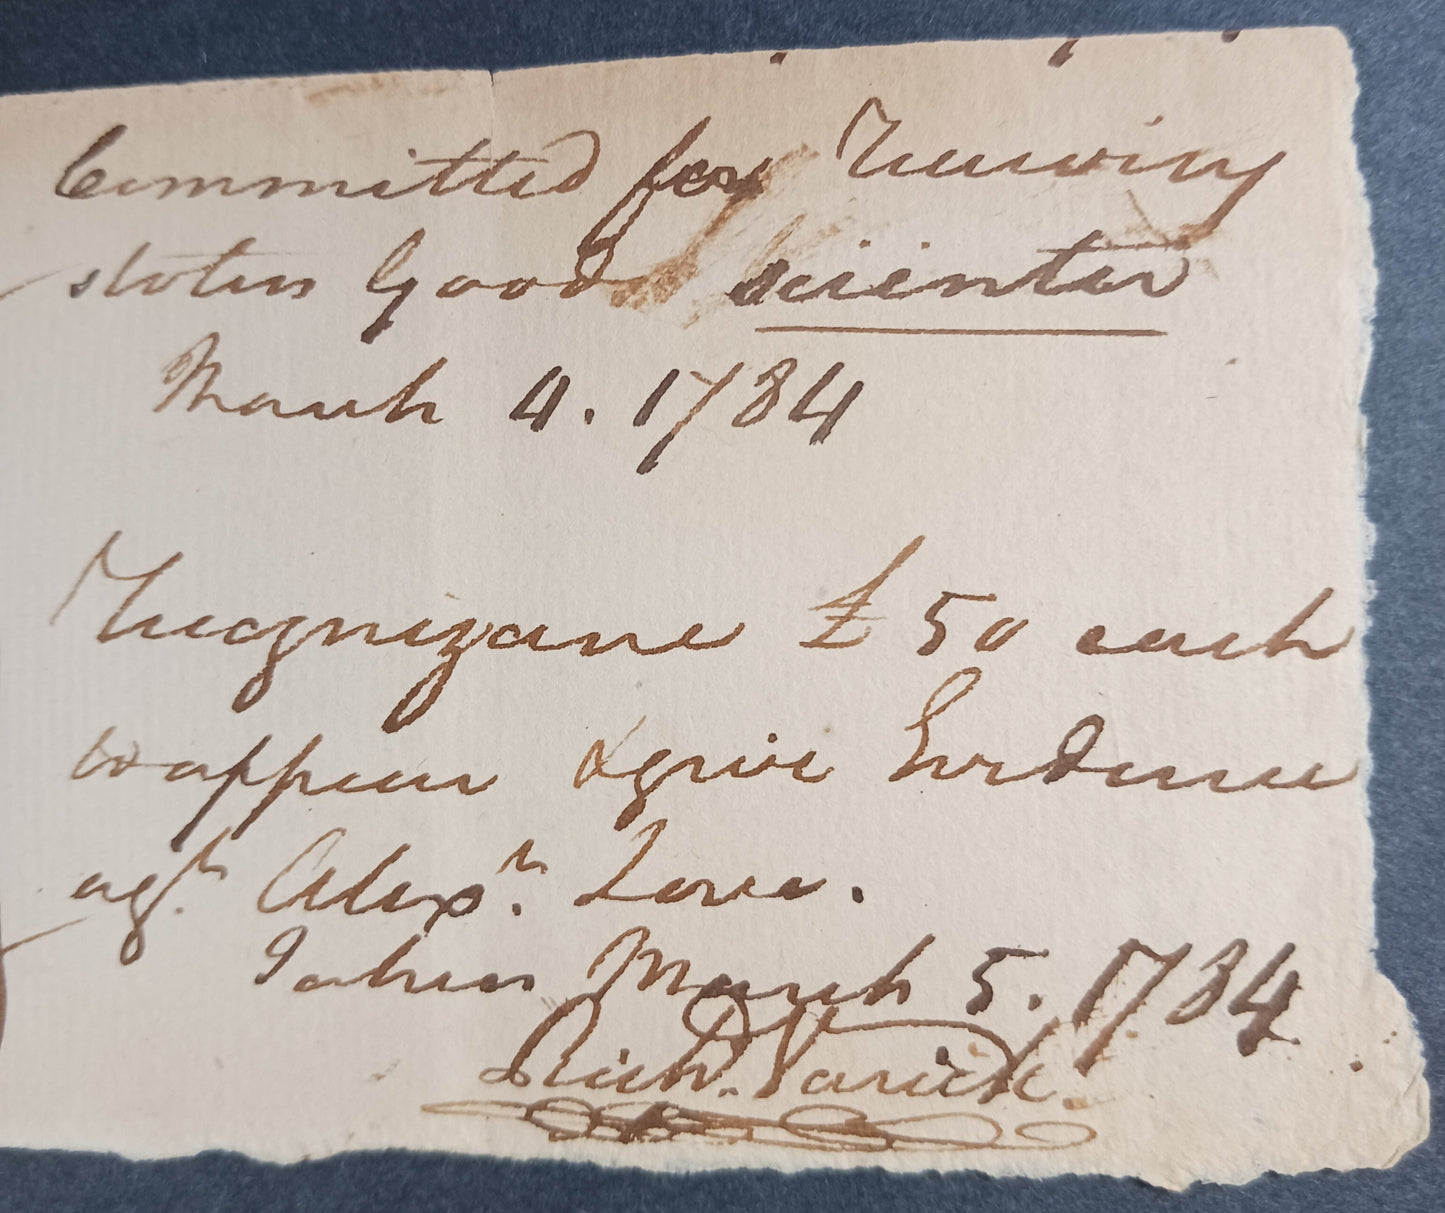 Committed for Receiving
stolen Goods scienter
March 4. 1784
Recognizance £ 50 each
to appear & give Evidence
agt. Alexr. Love.
Taken March 5. 1784
Richd. Varick.